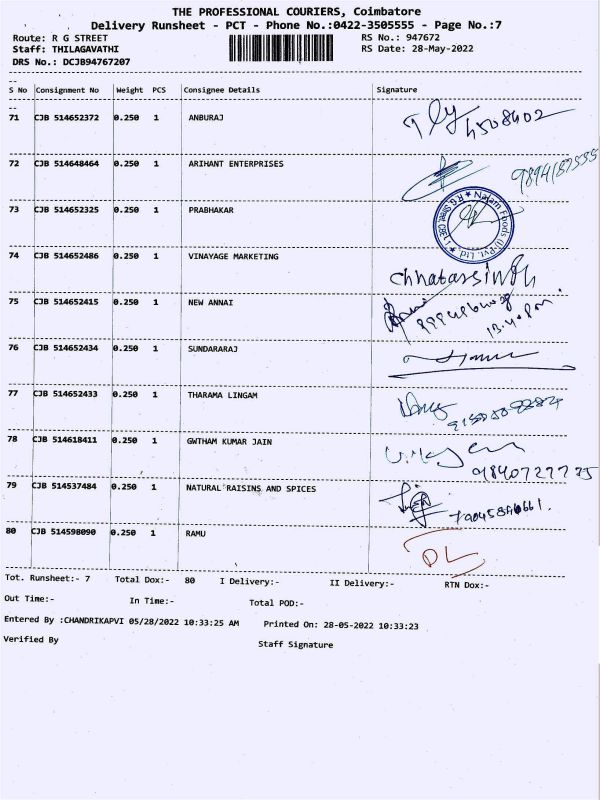 THE PROFESSIONAL COURIERS, Coimbatore
Delivery Runsheet - PCT - Phone No.:0422-3505555 - Page No.:7
Route: R G STREET RS No.: 947672
Staff: THILAGAVATHI RS Date: 28-May-2022
DRS No.: DCJB94767207
S No Consignment No Weight PCS Consignee Details Signature
71 CJB 514652372 0.250 1 ANBURAJ
72 CJB 514648464 0.250 1 ARIHANT ENTERPRISES
73 CJB 514652325 0.250 1 PRABHAKAR
Naiam Foods (I) Pvt. Ltd. ★ R.G Street, CBE-1 ★
74 CJB 514652486 0.250 1 VINAYAGE MARKETING
Chhatarsingh
75 CJB 514652415 0.250 1 NEW ANNAI
76 CJB 514652434 0.250 1 SUNDARARAJ
77 CJB 514652433 0.250 1 THARAMA LINGAM
78 CJB 514618411 0.250 1 GWTHAM KUMAR JAIN
9840727775
79 CJB 514537484 0.250 1 NATURAL RAISINS AND SPICES
80 CJB 514598090 0.250 1 RAMU
DL
Tot. Runsheet:- 7 Total Dox:- 80 I Delivery:- II Delivery:- RTN Dox:-
Out Time:- In Time:- Total POD:-
Entered By :CHANDRIKAPVI 05/28/2022 10:33:25 AM Printed On: 28-05-2022 10:33:23
Verified By Staff Signature